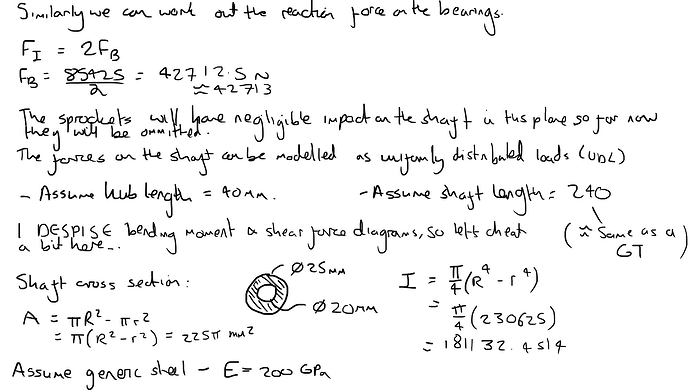 Similarly we can work out the reaction force on the bearings.
F_I = 2F_B
F_B = 85425/2 = 42712.5 N
≈ 42713
The sprockets will have negligible impact on the shaft in this plane so for now
they will be ommitted.
The forces on the shaft can be modelled as uniformly distributed loads (UDL)
- Assume hub length = 40mm. - Assume shaft length = 240
I DESPISE bending moment & shear force diagrams, so lets cheat
a bit here... (≈ Same as a
GT)
Shaft cross section: Ø25mm I = π/4(R⁴ - r⁴)
A = πR² - πr² Ø20mm = π/4(230625)
= π(R² - r²) = 225π mm² = 181132.4514
Assume generic steel - E = 200 GPa